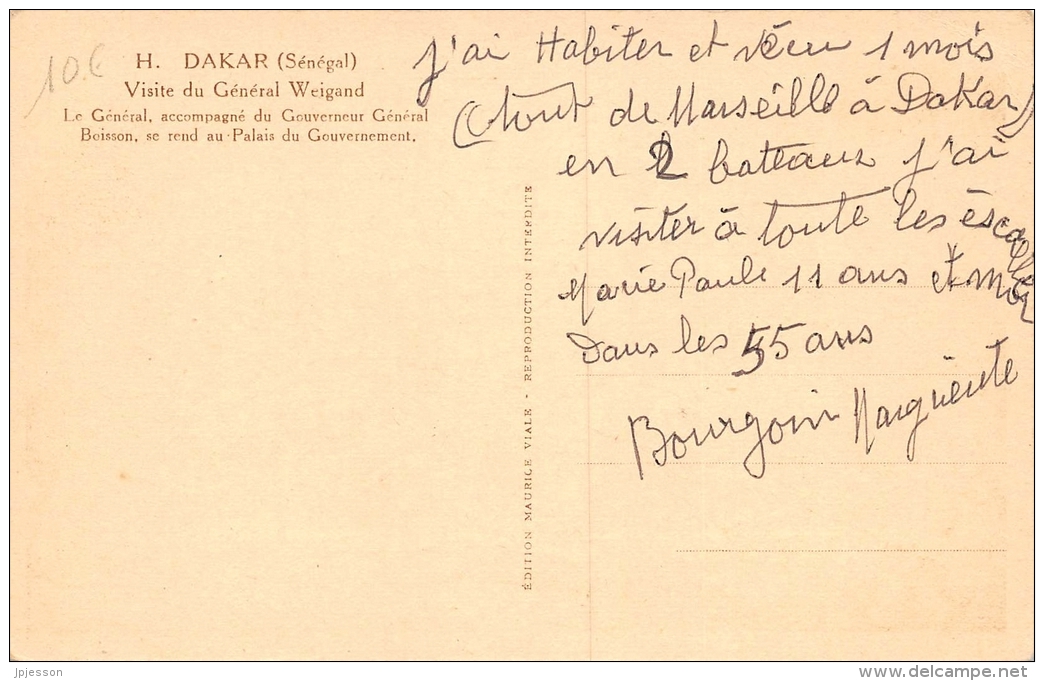 10.€
H. DAKAR (Sénégal)
Visite du Général Weigand
Le Général, accompagné du Gouverneur Général
Boisson, se rend au Palais du Gouvernement.
ÉDITION MAURICE VIALE - REPRODUCTION INTERDITE
J'ai Habiter et vécu 1 mois
(tout de Marseille à Dakar)
en 2 bateaux j'ai
visiter à toute les éscalles
Marie Paule 11 ans et moi
Dans les 55 ans
Bourgoin Marguerite
jpjesson
delcampe.net